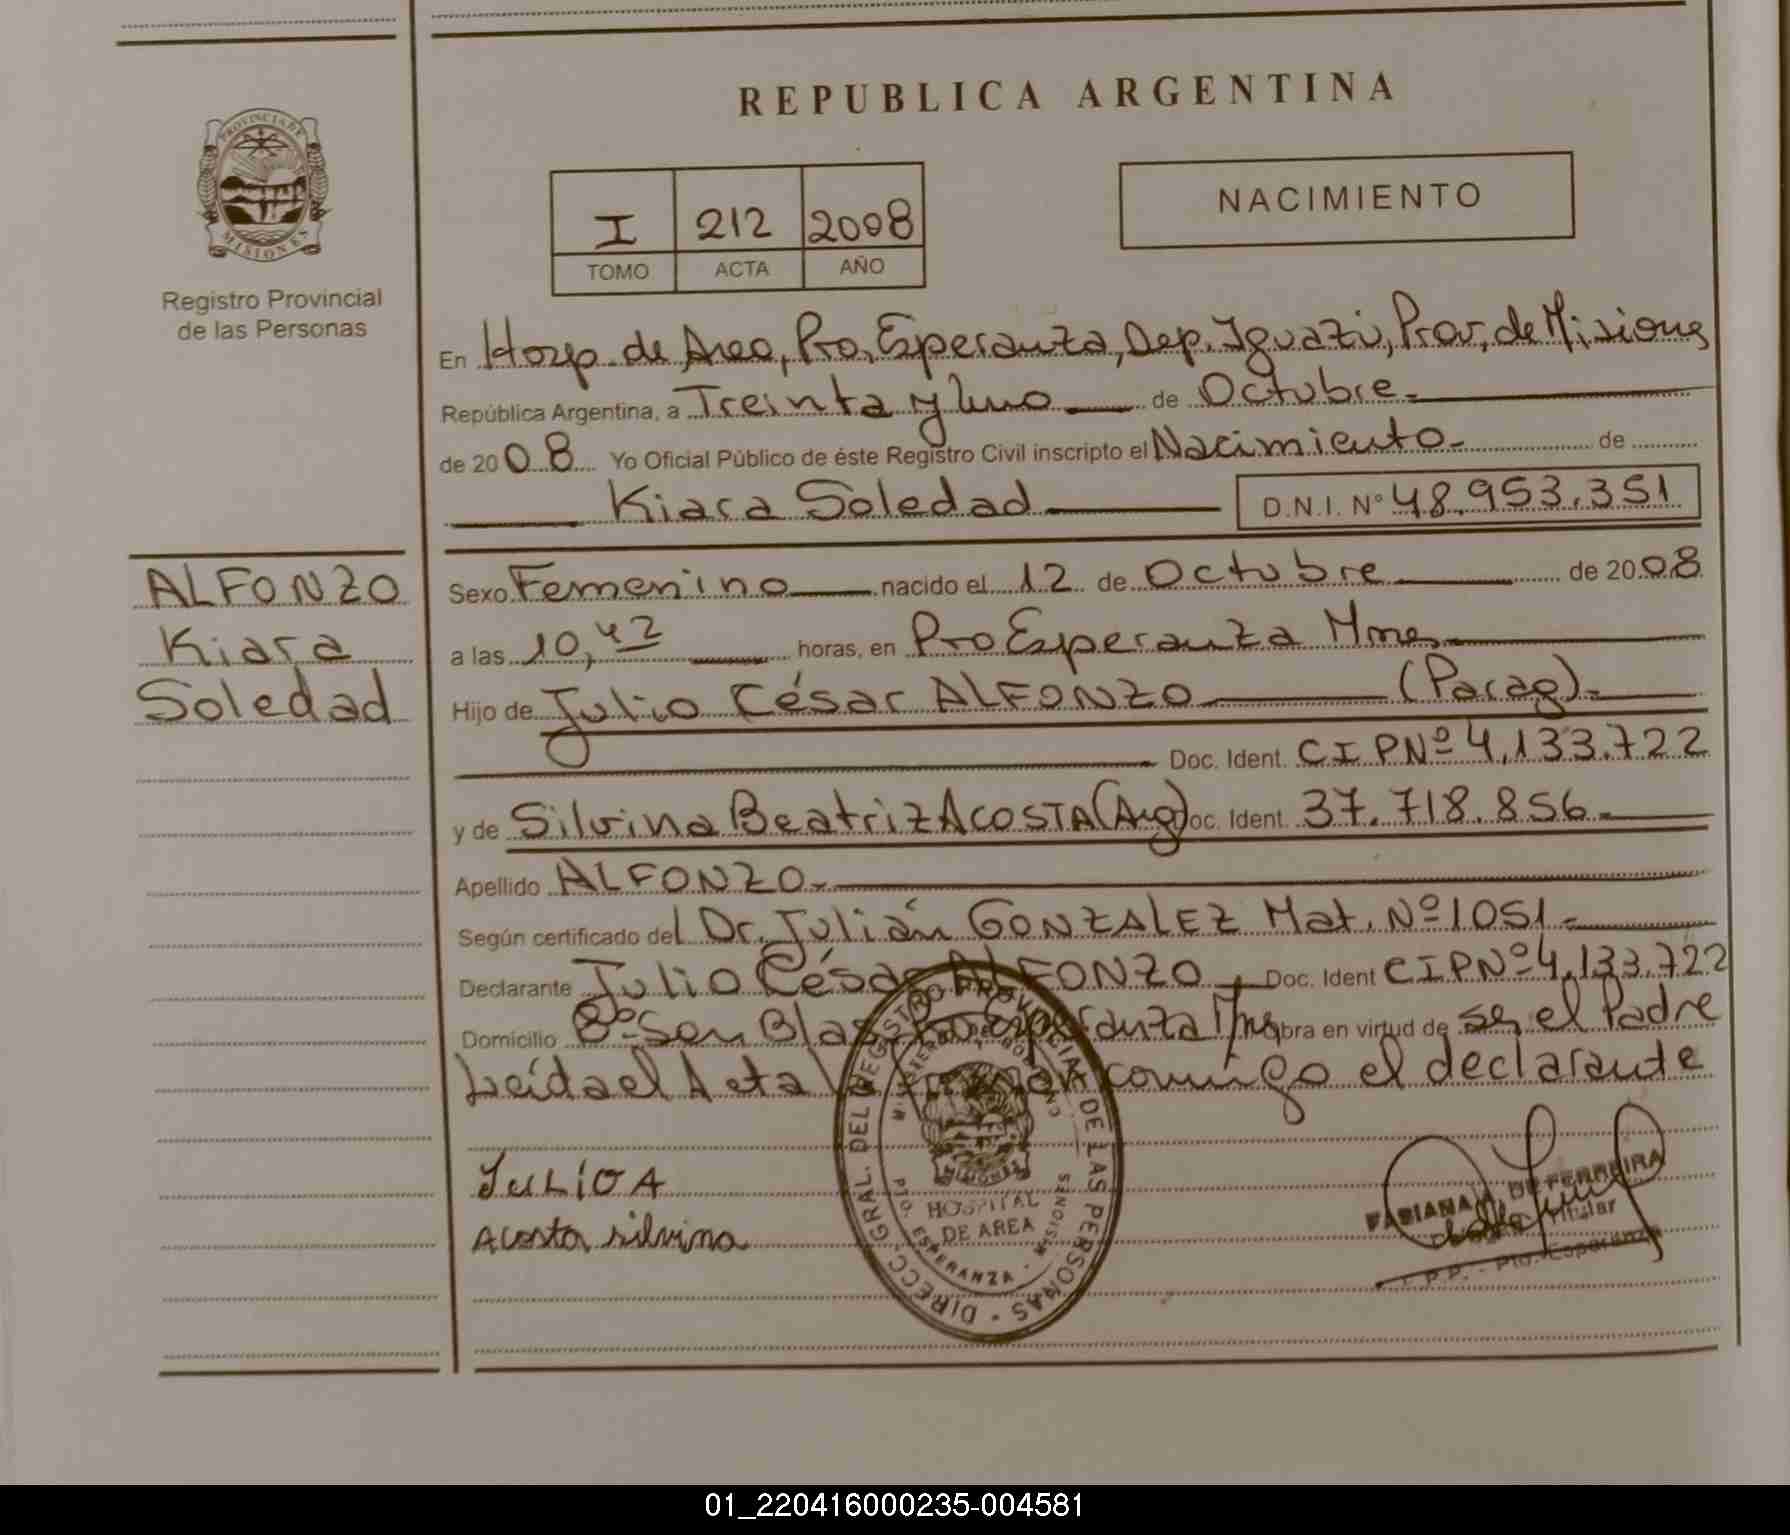 REPUBLICA ARGENTINA
PROVINCIA DE MISIONES
Registro Provincial
de las Personas
I 212 2008
TOMO ACTA AÑO
NACIMIENTO
En Hosp. de Area, Pto, Esperanza, Dep. Iguazú, Prov, de Misiones
República Argentina, a Treinta y Uno de Octubre.
de 2008 Yo Oficial Público de éste Registro Civil inscripto el Nacimiento. de
Kiara Soledad D.N.I. Nº 48.953.351
ALFONZO
Kiara
Soledad
Sexo Femenino nacido el 12 de Octubre de 2008
a las 10,42 horas, en Pto Esperanza Mnes.
Hijo de Julio César ALFONZO (Parag).
Doc. Ident. CIPNº 4,133.722
y de Silvina Beatriz ACOSTA (Arg) Doc. Ident. 37.718.856.
Apellido ALFONZO.
Según certificado del Dr. Julián GONZALEZ Mat. Nº 1051.
Declarante Julio César ALFONZO Doc. Ident CIPNº 4.133.722
Domicilio Bº San Blas Pto Esperanza Mnes obra en virtud de ser el Padre
Leída el Acta conmigo el declarante
JULIO A
Acosta silvina
DIRECC. GRAL. DEL REGISTRO PROVINCIAL DE LAS PERSONAS
MISIONES
HOSPITAL
DE AREA
PTO. ESPERANZA - MISIONES
FABIANA DE FERREIRA
Titular
R.P.P. - Pto. Esperanza
01_220416000235-004581